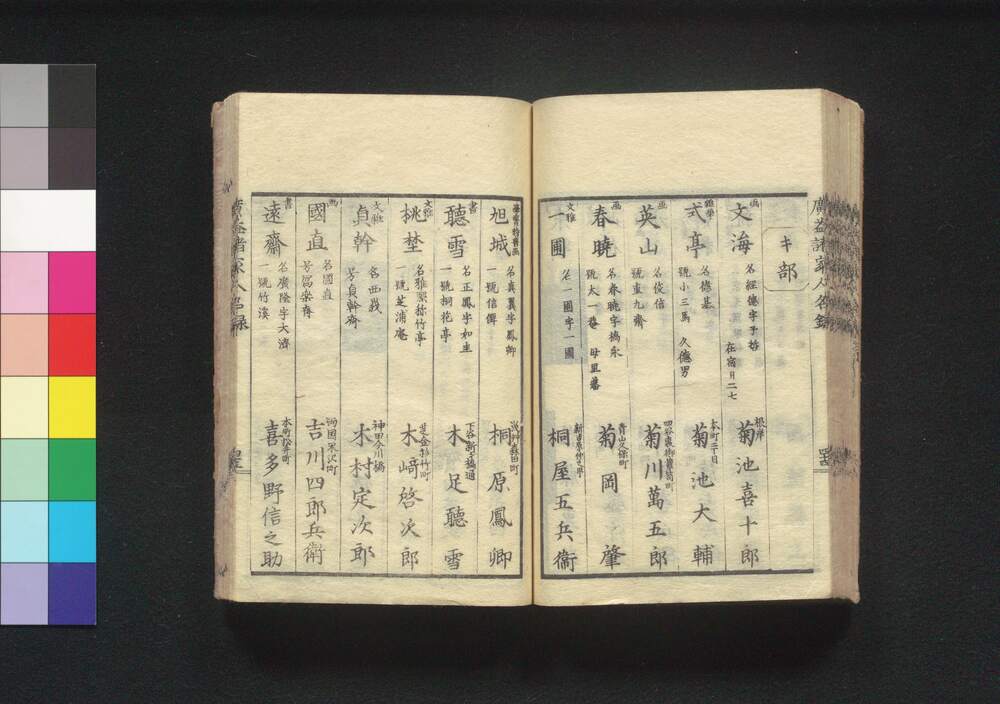 廣益諸家人名録
キ部
画
文海
名經德字子哲
在宿日二七
根岸
菊池喜十郎
雜学
式亭
名德基
一號小三馬 久德男
本町二丁目
菊池大輔
画
英山
名俊信
一號重九齋
菊川萬五郎
画
春曉
名春曉字橋永
號大一菴
青山久保町
菊岡肇
文雅
一圃
名一圃字一圃
桐屋五兵衞
旭城
名真翼字鳳卿
一號信僲
桐原鳳卿
書
聽雪
名正鳳字如圭
一號桐花亭
下谷新橋通
木足聽雪
文雅
桃埜
名雅聚称竹亭
一號芝浦庵
木﨑啓次郎
文雅
貞幹
名西巌
号貞幹齋
神田今川橋
木村定次郎
画
國直
名國直
号寫楽斎
両国米沢町
吉川四郎兵衛
書
遠齋
名廣隆字大濟
一號竹溪
本所松井町
喜多野信之助
廣益諸家人名録